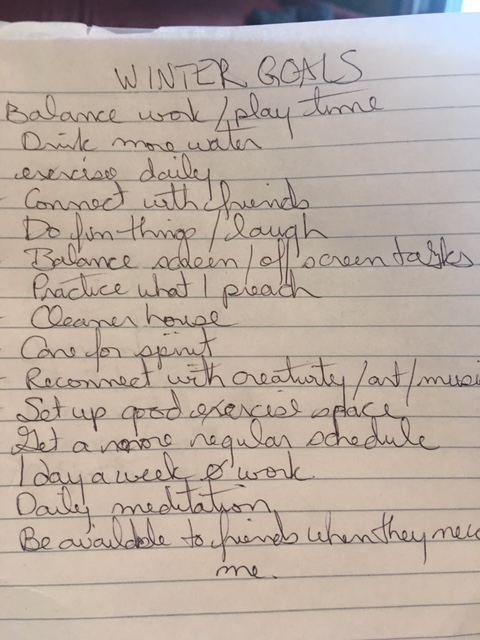 WINTER GOALS
Balance work / play time
Drink more water
exercise daily
- Connect with friends
Do fun things / laugh
- Balance screen / off screen tasks
Practice what I preach
- Cleaner house
- Care for spirit
- Reconnect with creativity / art / musi
- Set up good exercise space
Get a more regular schedule
1 day a week Ø work.
Daily meditation
Be available to friends when they nee
me.